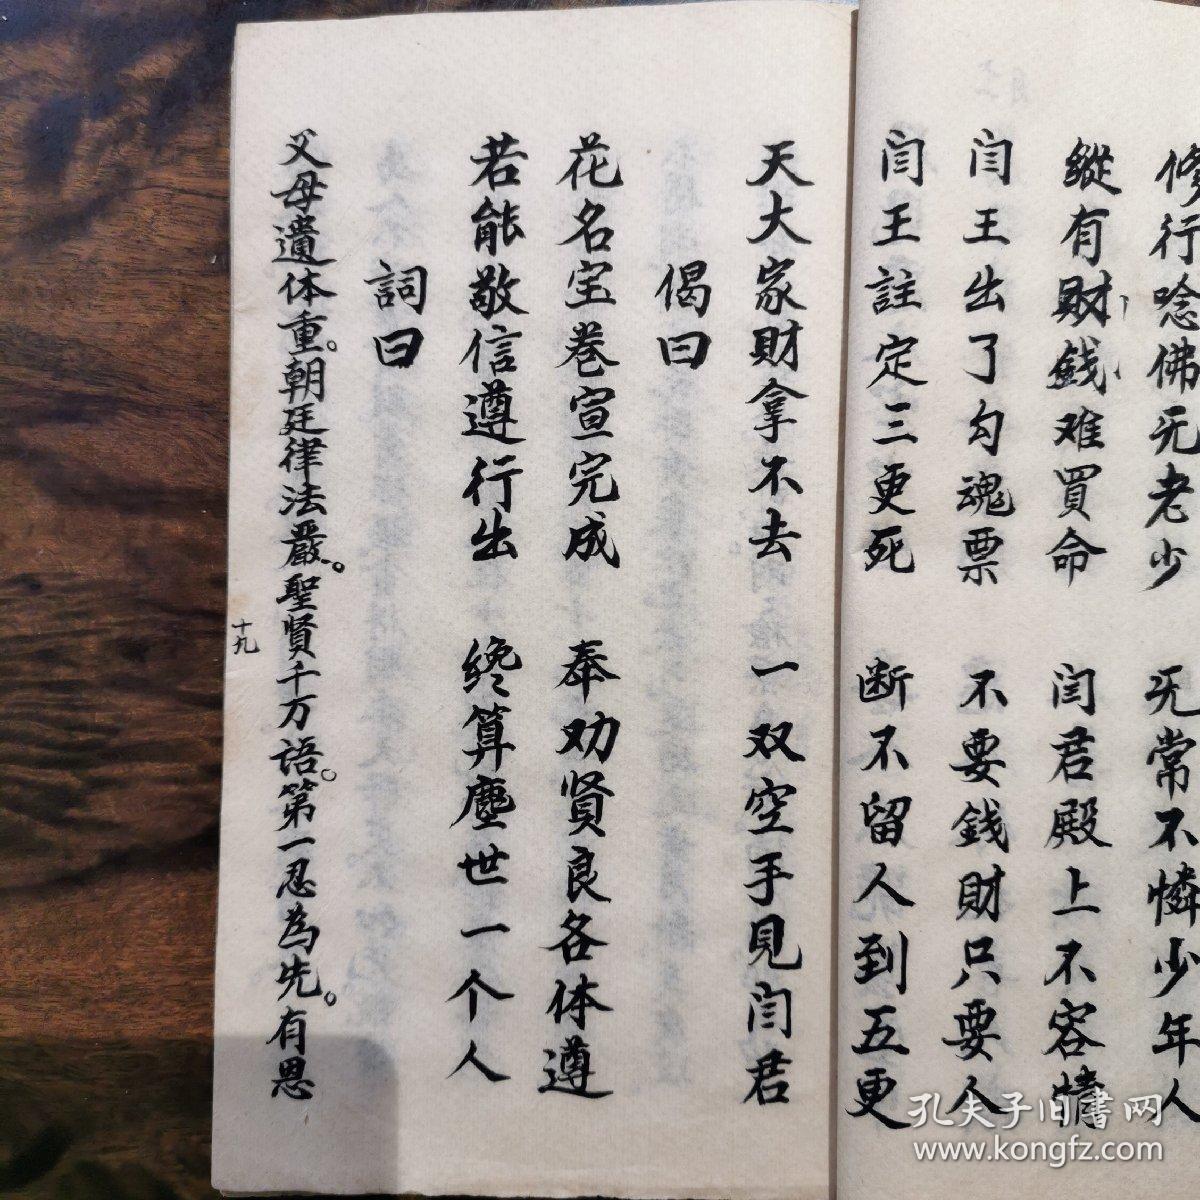 修行唸佛无老少 无常不憐少年人
縱有財錢难買命 闫君殿上不容情
闫王出了勾魂票 不要錢財只要人
闫王註定三更死 断不留人到五更
天大家財拿不去 一双空手見闫君
偈曰
花名宝卷宣完成 奉劝贤良各体遵
若能敬信遵行出 终算塵世一个人
詞曰
父母遺体重。朝廷律法嚴。聖贤千万语。第一忍為先。有恩
十九
孔夫子旧書网
www.kongfz.com